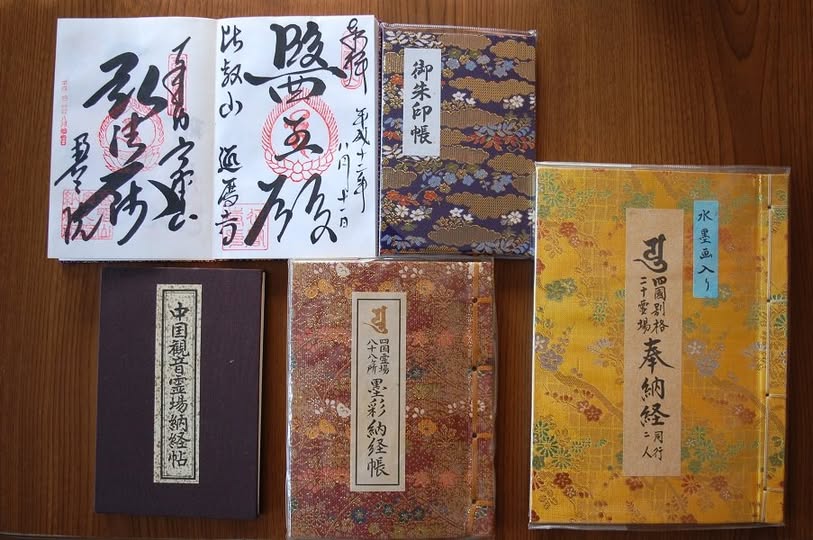 奉拝
平成十二年
八月十一日
醫王殿
比叡山 延暦寺
弘法大師
奥之院
御朱印帳
水墨画入り
四國別格
二十霊場
奉納経
同行
二人
四国霊場
八十八ヶ所
墨彩納経帳
中国観音霊場納経帖